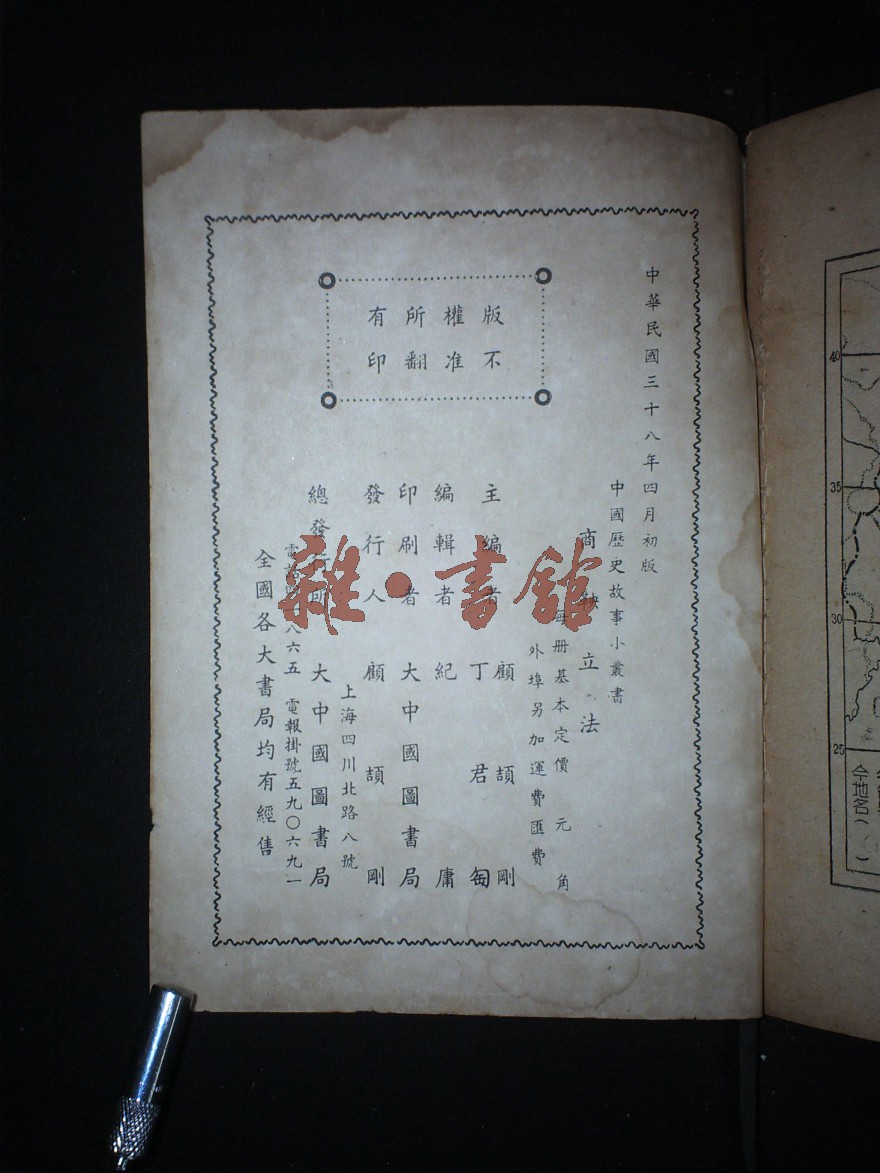 中華民國三十八年四月初版
中國歷史故事小叢書
商鞅立法
每册基本定價 元 角
外埠另加運費匯費
主編者 顧頡剛 丁君匋
編輯者 紀庸
印刷者 大中國圖書局
發行人 顧頡剛
上海四川北路八號
總發行所 大中國圖書局
八六五 電報掛號五九〇六九一
全國各大書局均有經售
版權所有
不准翻印
雜·書館
40
35
30
25
今地名( )